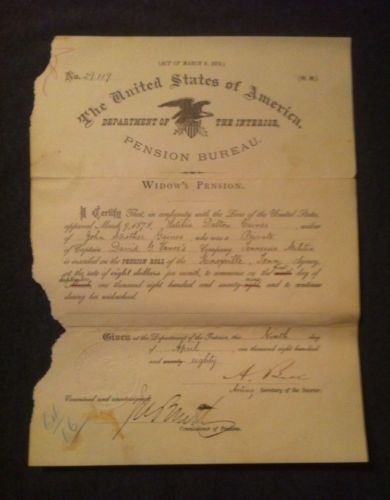 (ACT OF MARCH 9, 1878.)
No. 29.119
(W. W.)
The United States of America,
DEPARTMENT OF THE INTERIOR,
PENSION BUREAU.
WIDOW'S PENSION.
I Certify That, in conformity with the Laws of the United States,
approved March 9, 1878, Dalton Gaines, widow
of John Strother Gaines who was a Private
of Captain David G. Vance's Company, Tennessee Militia
is inscribed on the PENSION ROLL of the Knoxville, Tenn Agency
at the rate of eight dollars per month, to commence on the day of
one thousand eight hundred and seventy and to continue
during her widowhood.
Given at the Department of the Interior, this Ninth day
of April one thousand eight hundred
and eighty
A. Bell
Acting Secretary of the Interior.
Examined and countersigned,
Commissioner of Pensions.